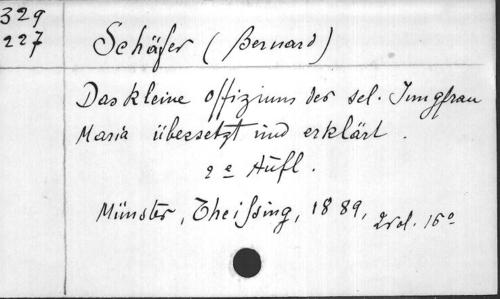 329
227
Schäfer (Bernard)
Das kleine Offizium der sel. Jungfrau
Maria übersetzt und erklärt.
2e Aufl.
Münster, Theißing, 1889, 2vol. 16º